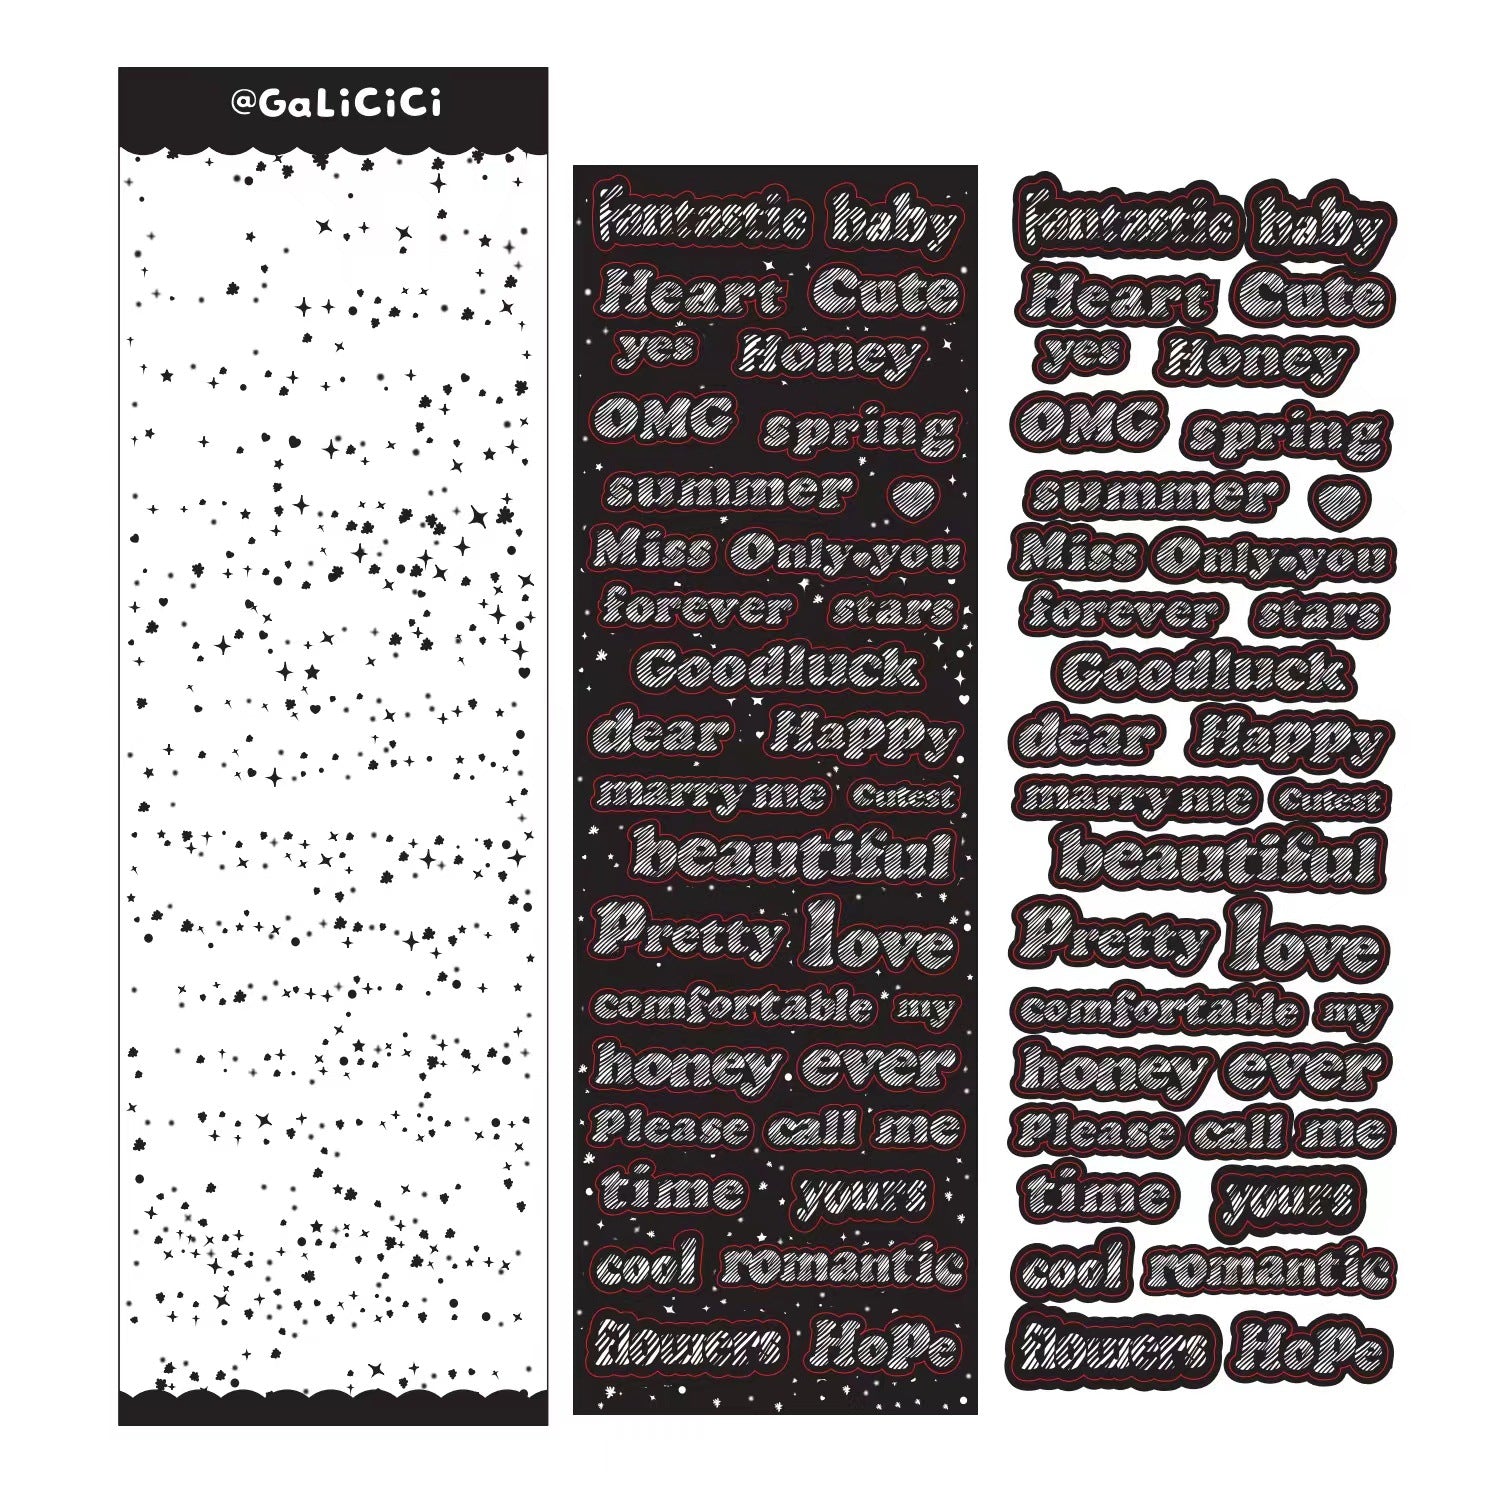 @GaLiCiCi
fantastic baby
Heart Cute
yes Honey
OMG spring
summer
Miss Only you
forever stars
Goodluck
dear Happy
marry me Cutest
beautiful
Pretty love
comfortable my
honey ever
Please call me
time yours
cool romantic
flowers HoPe
fantastic baby
Heart Cute
yes Honey
OMG spring
summer
Miss Only you
forever stars
Goodluck
dear Happy
marry me Cutest
beautiful
Pretty love
comfortable my
honey ever
Please call me
time yours
cool romantic
flowers HoPe